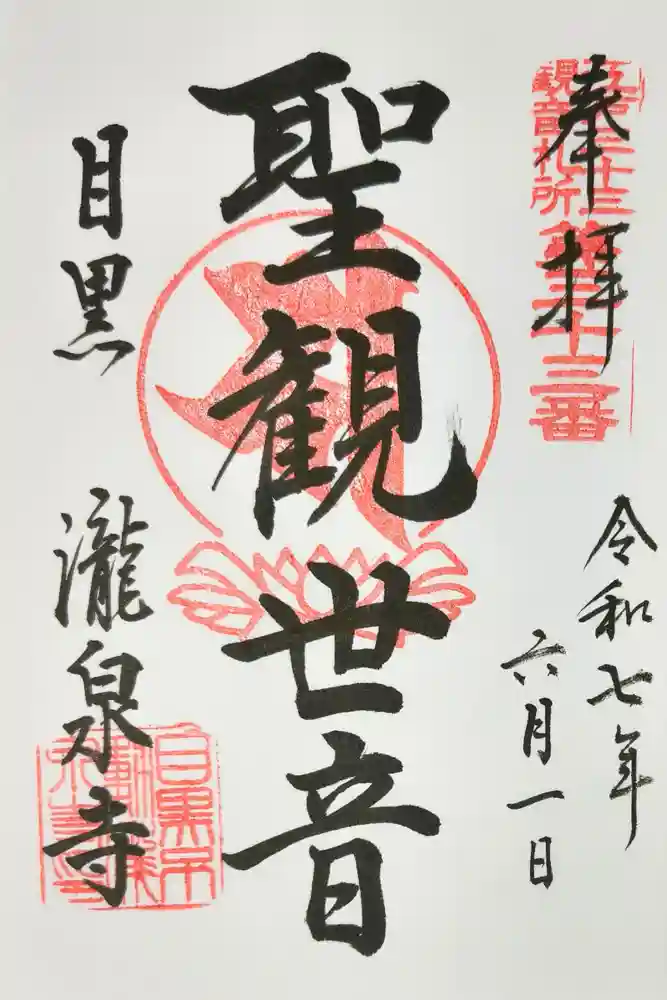 奉拝
江戸三十三
観音札所
第三十三番
令和七年
六月一日
聖観世音
目黒
瀧泉寺